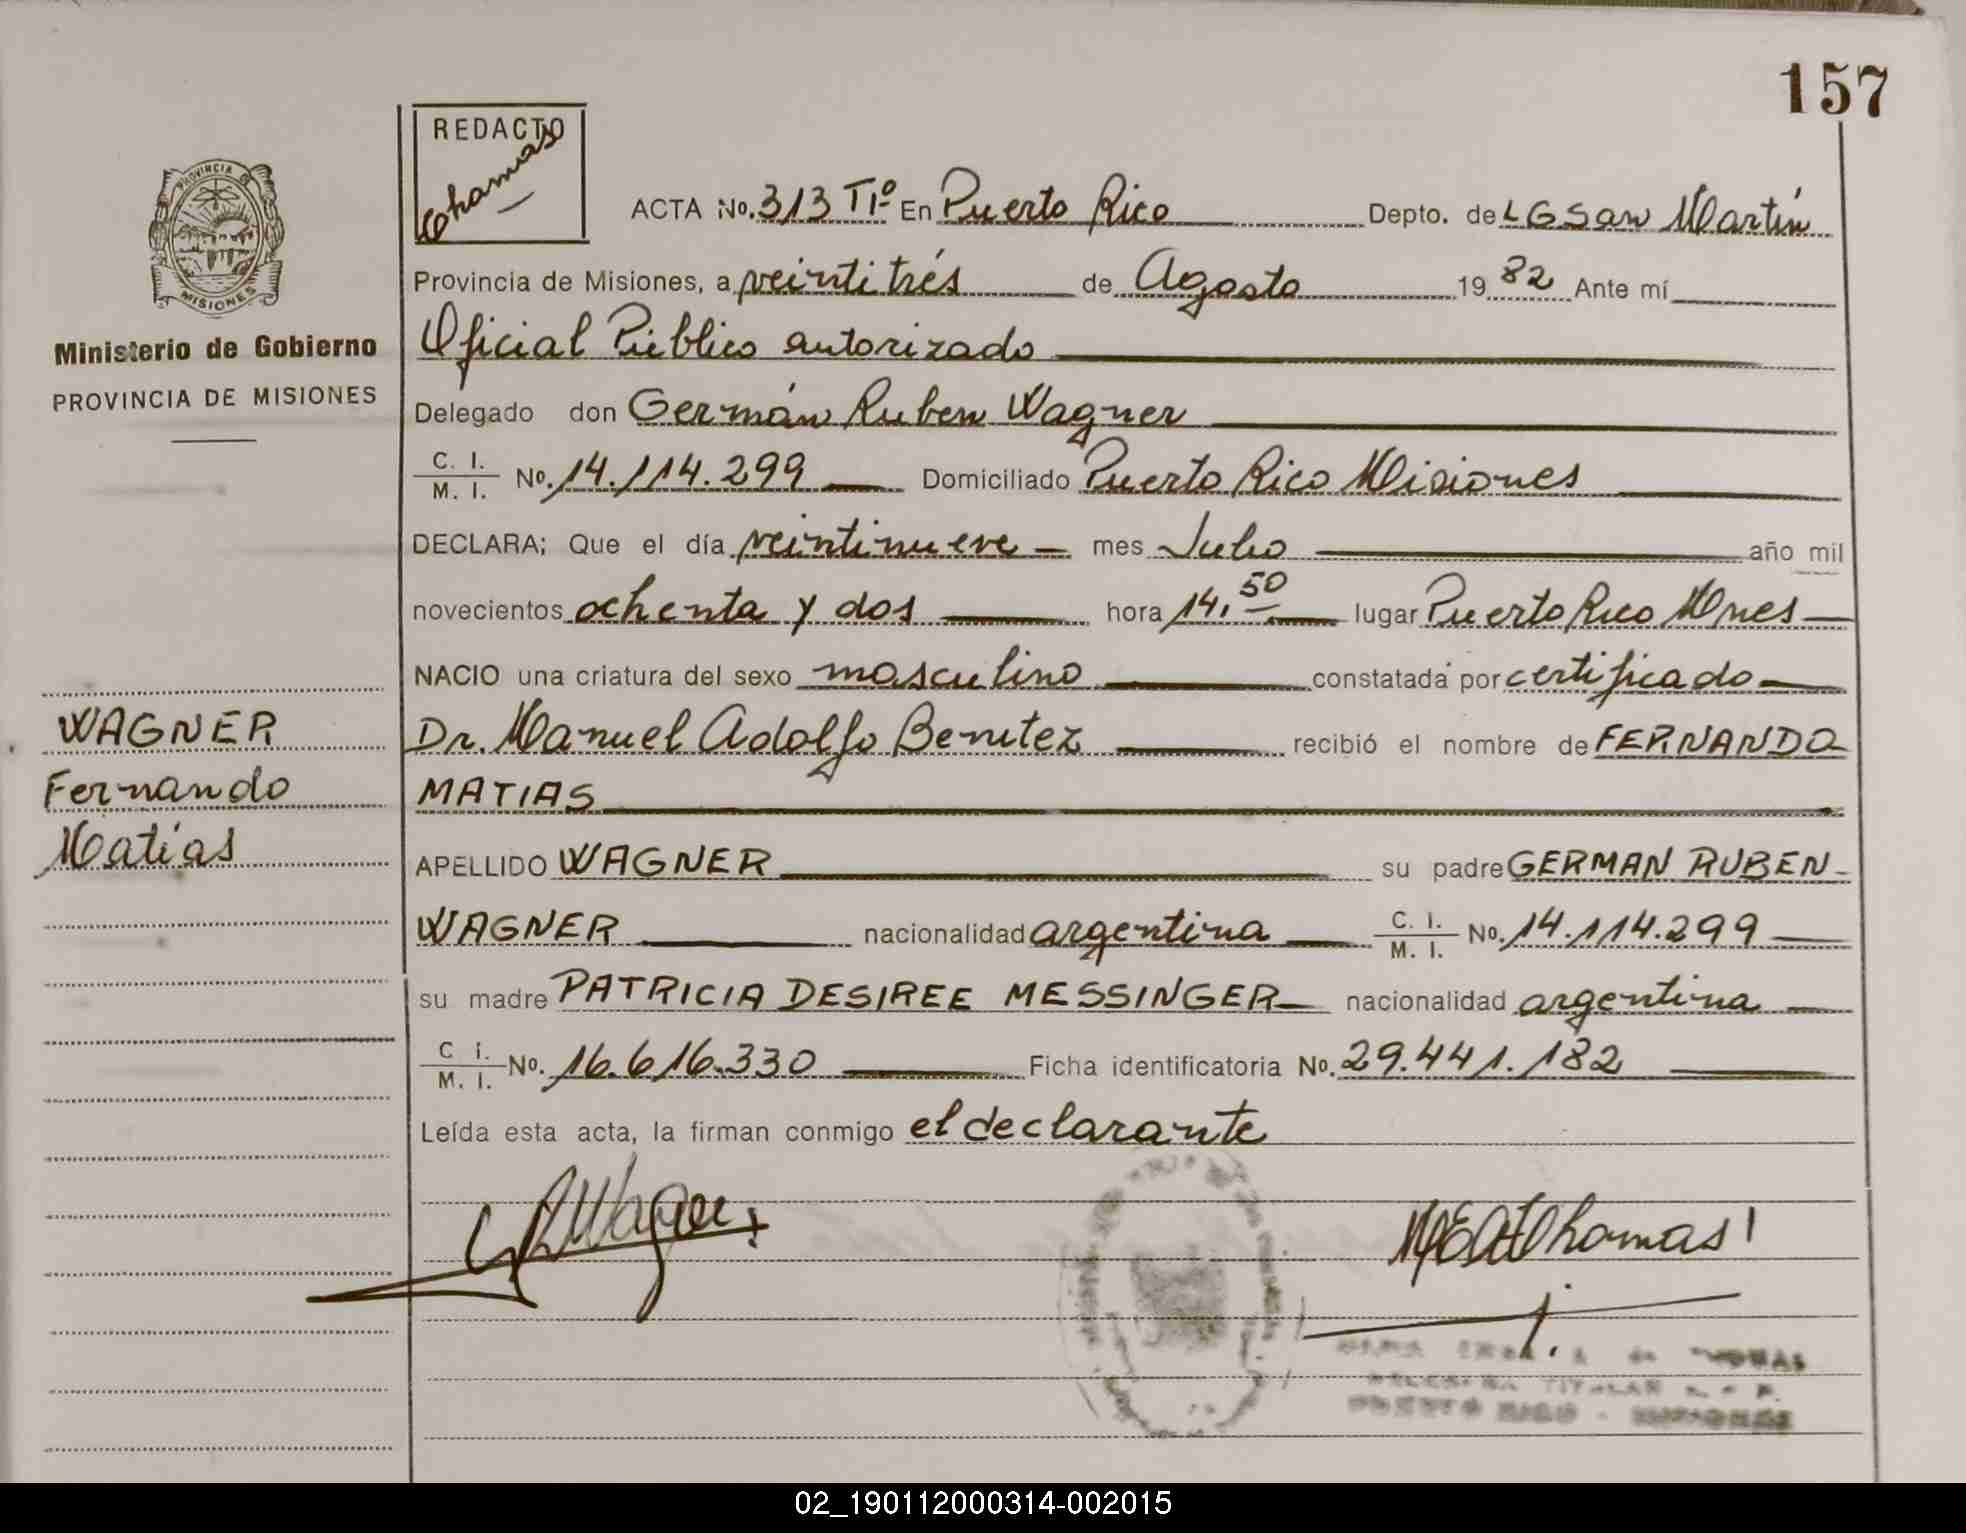 157
REDACTO
Thomas
PROVINCIA DE
MISIONES
Ministerio de Gobierno
PROVINCIA DE MISIONES
ACTA No. 313 Tº Iº En Puerto Rico Depto. de L G San Martín
Provincia de Misiones, a veintitrés de Agosto 19 82 Ante mí
Oficial Público autorizado
Delegado don Germán Ruben Wagner
C. I. M. I. No. 14.114.299 Domiciliado Puerto Rico Misiones
DECLARA; Que el día veintinueve mes Julio año mil
novecientos ochenta y dos hora 14,50 lugar Puerto Rico Mnes
NACIO una criatura del sexo masculino constatada por certificado
Dr. Manuel Adolfo Benitez recibió el nombre de FERNANDO
MATIAS
WAGNER
Fernando
Matías
APELLIDO WAGNER su padre GERMAN RUBEN
WAGNER nacionalidad argentina C. I. M. I. No. 14.114.299
su madre PATRICIA DESIREE MESSINGER nacionalidad argentina
C I. M. I. No. 16.616.330 Ficha identificatoria No. 29.441.182
Leída esta acta, la firman conmigo el declarante
Wagner
Thomas
TITULAR
PUERTO RICO - MISIONES
02_190112000314-002015